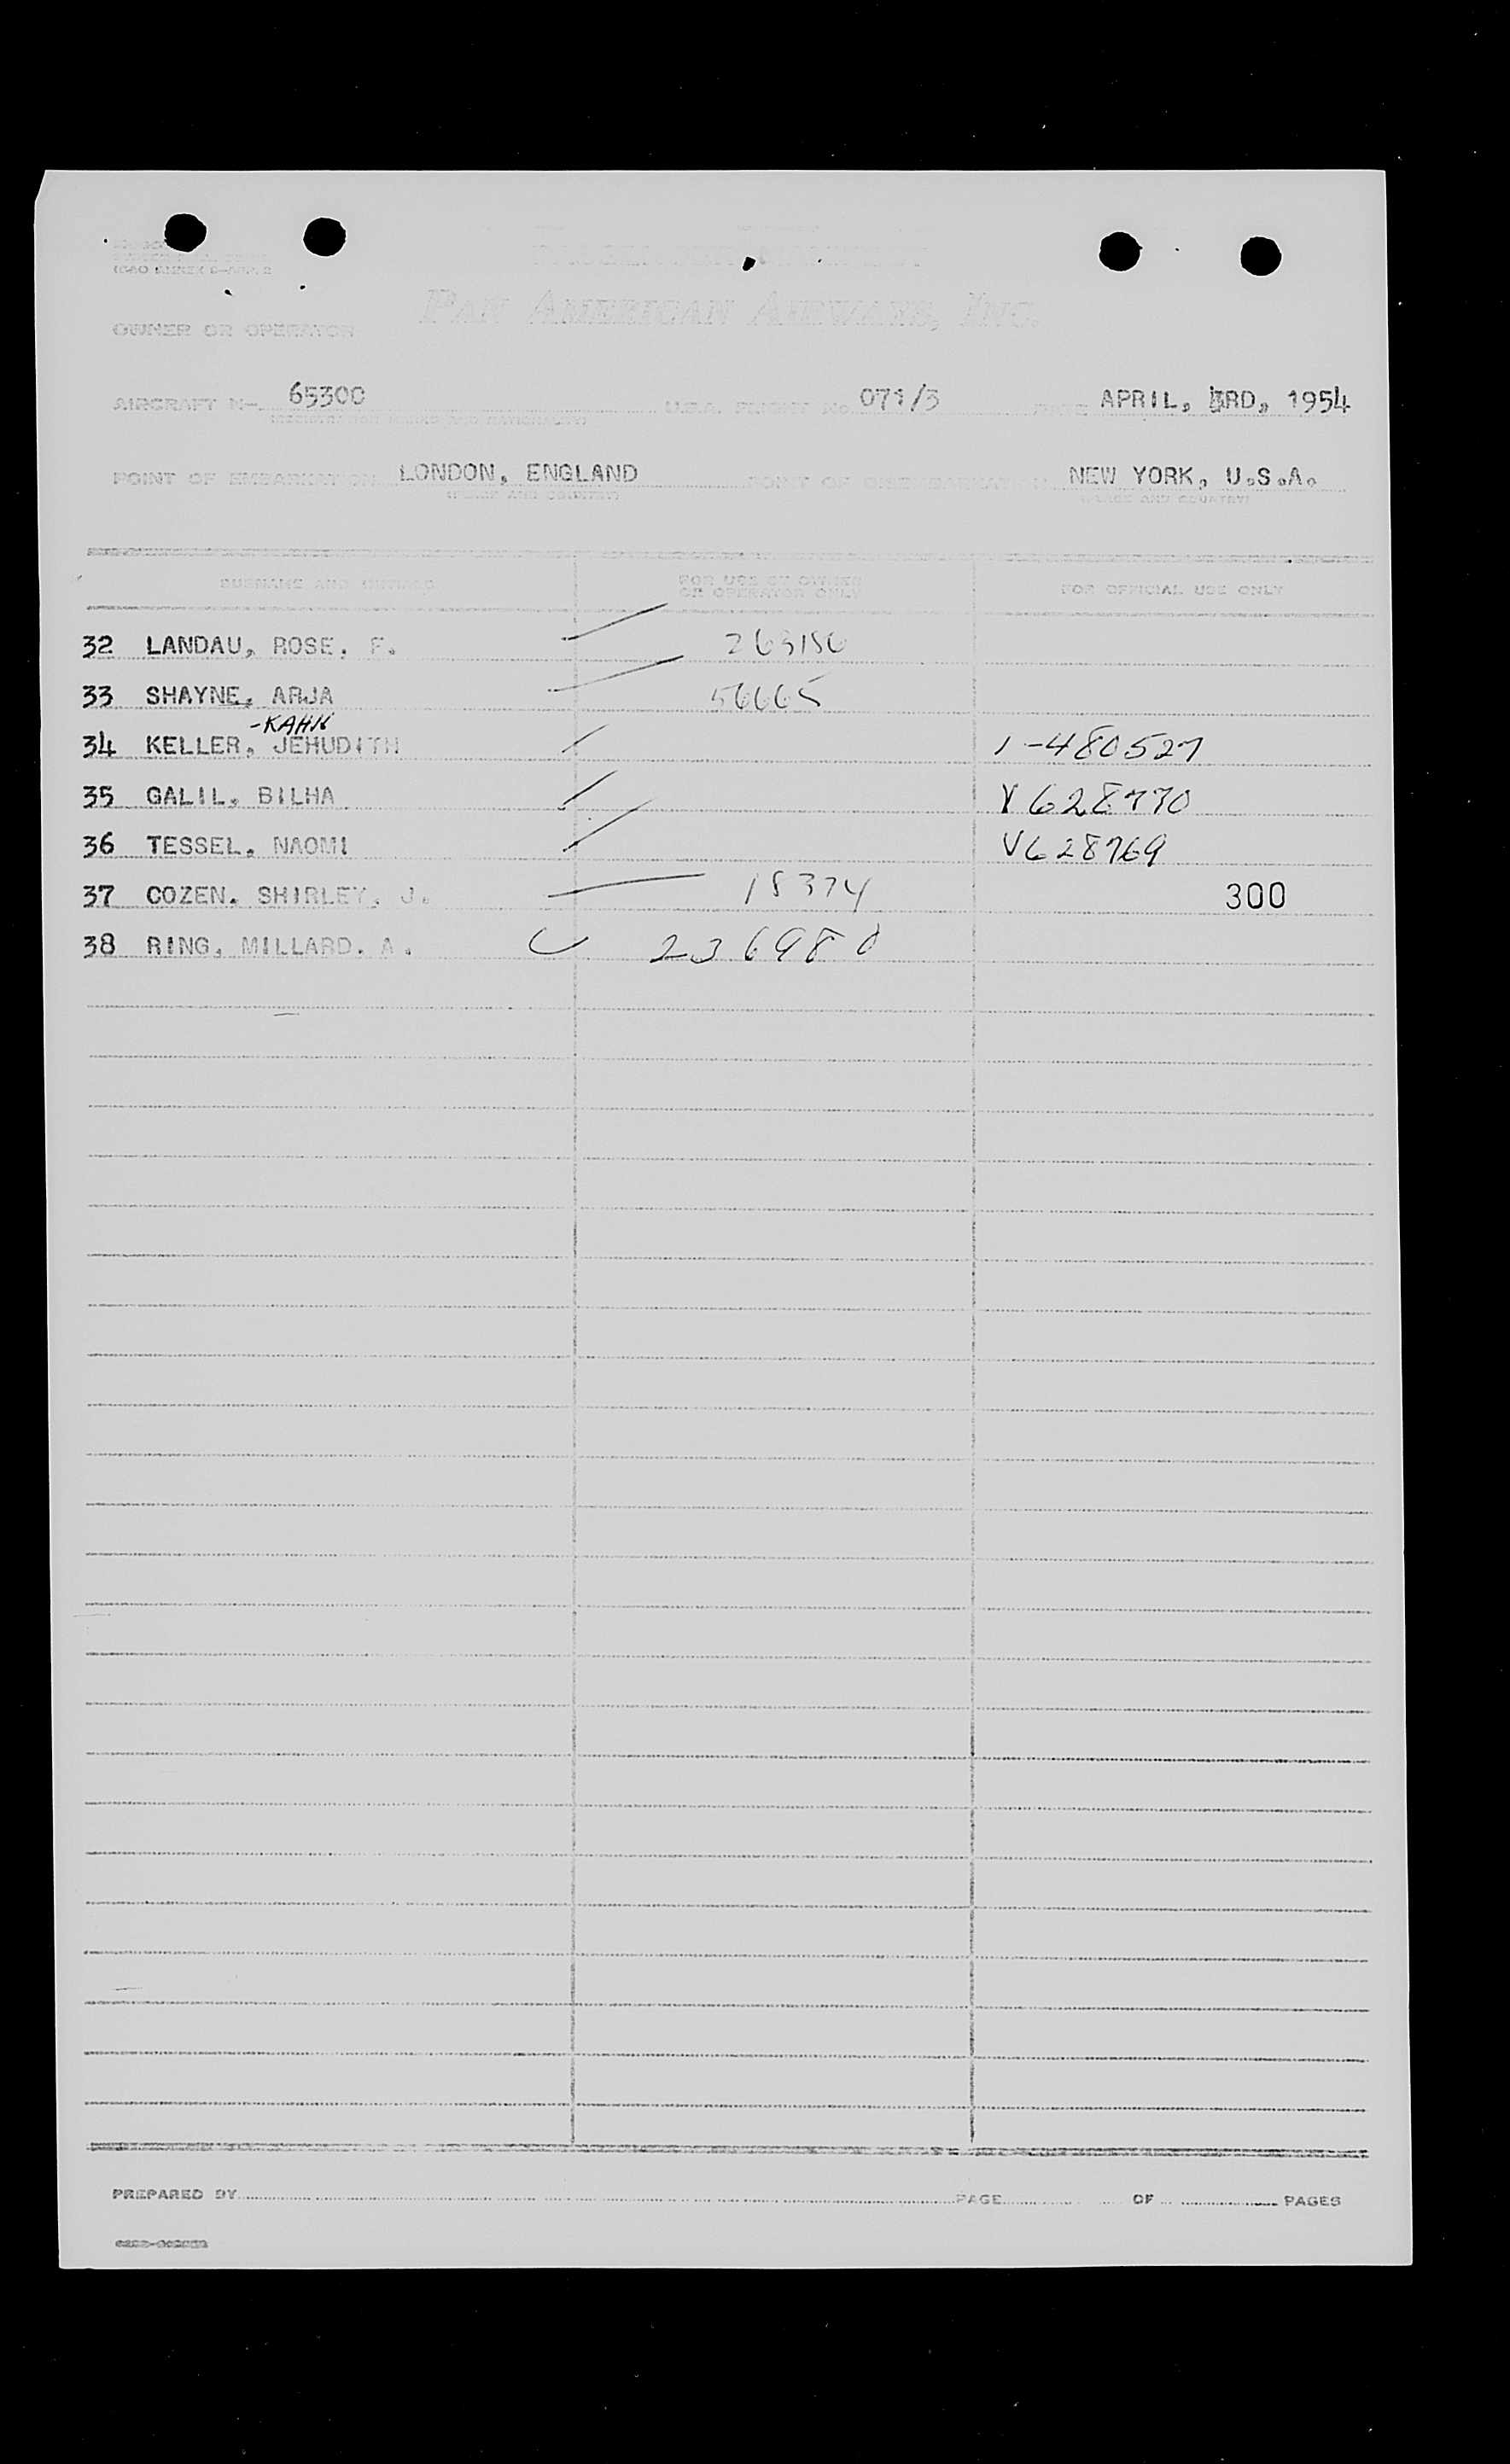 ICAO ANNEX 9-APP. 2
PAN AMERICAN AIRWAYS, INC.
OWNER OR OPERATOR
AIRCRAFT N- 65300 FLIGHT No. 071/3 DATE APRIL, 3RD, 1954
POINT OF EMBARKATION LONDON, ENGLAND POINT OF DISEMBARKATION NEW YORK, U.S.A.
(PLACE AND COUNTRY) (PLACE AND COUNTRY)
SURNAME AND INITIALS FOR USE OF OWNER OR OPERATOR ONLY FOR OFFICIAL USE ONLY
32 LANDAU, ROSE. F. 263156
33 SHAYNE, ARJA 56665
-KAHN
34 KELLER, JEHUDITH 1-480527
35 GALIL, BILHA V628770
36 TESSEL, NAOMI V628769
37 COZEN. SHIRLEY. J. 18374 300
38 RING, MILLARD. A. 236980
PREPARED BY PAGE OF PAGES